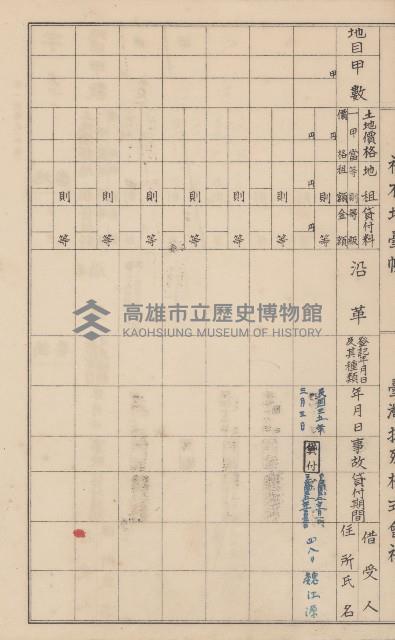 社有地臺帳
臺灣拓殖株式會社
地目
甲數
土地價格
一甲當價格
地租
等則
地租額
貸付料
等級
金額
沿革
登記年月日及其種類
年月日
事故
貸付期間
借受人
住所
氏名
甲
円
円
円
円
則
等
則
等
則
等
則
等
則
等
則
等
則
等
民國三五年
三月三日
貸付
四八〇
魏江源
高雄市立歷史博物館
KAOHSIUNG MUSEUM OF HISTORY